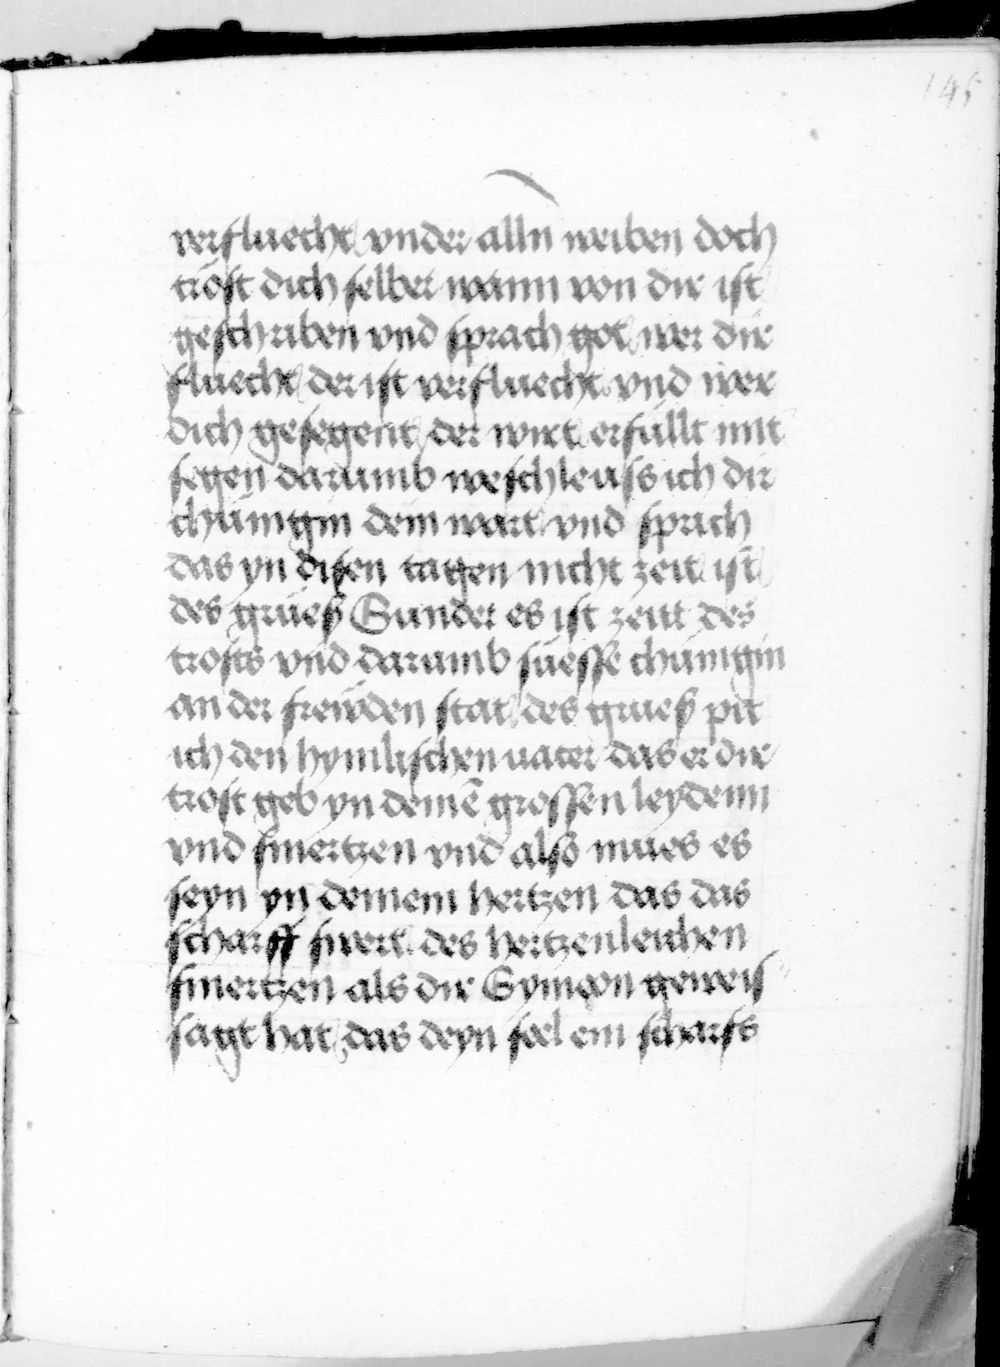 145
verfluecht vnder alln weiben doch
tröst dich selber wann von dir ist
geschriben vnd sprach got wer dir
fluecht der ist verfluecht vnd wer
dich gesegent der wirt erfüllt mit
segen darumb weschleuss ich dir
chünigin dein wart vnd sprich
das yn disen tagen nicht zeit ist
des grües Sunder es ist zeitt des
trosts vnd darumb süesse chünigin
an der frewden stat des grues pit
ich den hymlischen uater das er dir
trost geb yn deinē grossen leydenn
vnd smertzen vnd also mues es
seyn yn deinem hertzen das das
scharff swert des hertzenleichen
smertzen als dir Symeon geweis
sagt hat das deyn seel ein scharfs